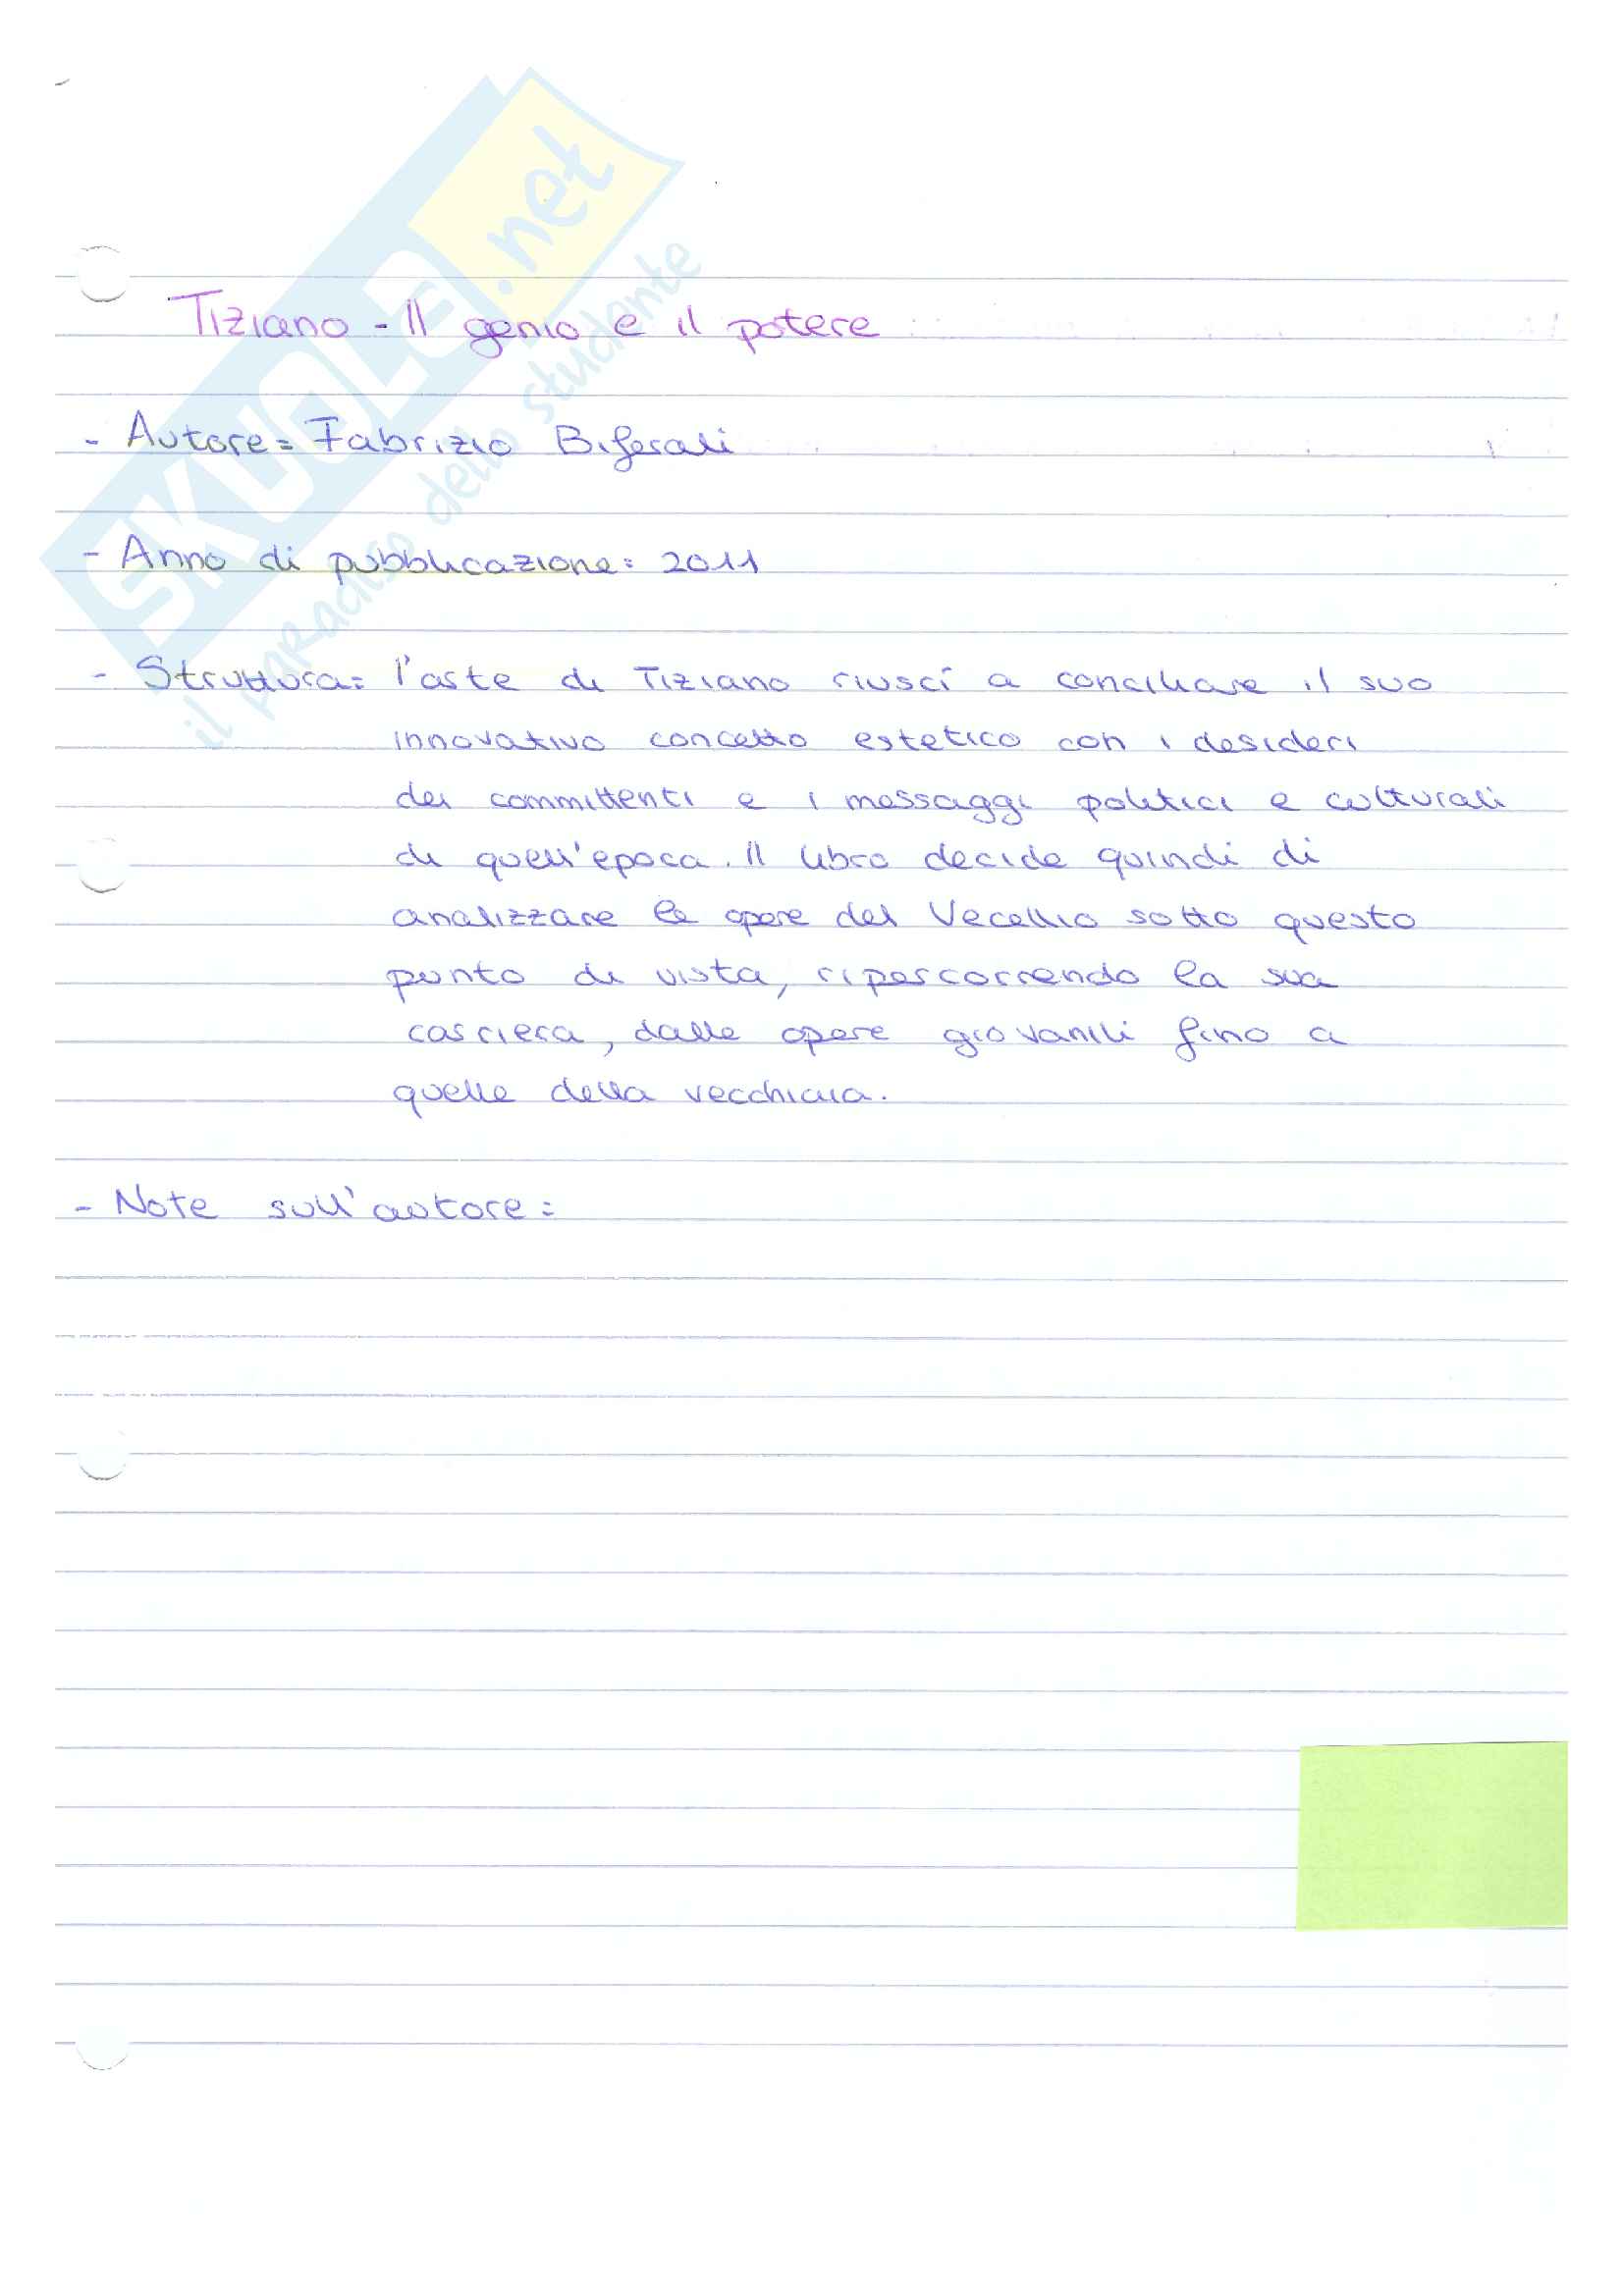 SKUOLA.net
il paradiso dello studente
Tiziano - Il genio e il potere
- Autore= Fabrizio Biferali
- Anno di pubblicazione= 2011
- Struttura= l'arte di Tiziano riuscì a conciliare il suo
innovativo concetto estetico con i desideri
dei committenti e i messaggi politici e culturali
di quell'epoca. Il libro decide quindi di
analizzare le opere del Vecellio sotto questo
punto di vista, ripercorrendo la sua
carriera, dalle opere giovanili fino a
quelle della vecchiaia.
- Note sull'autore=